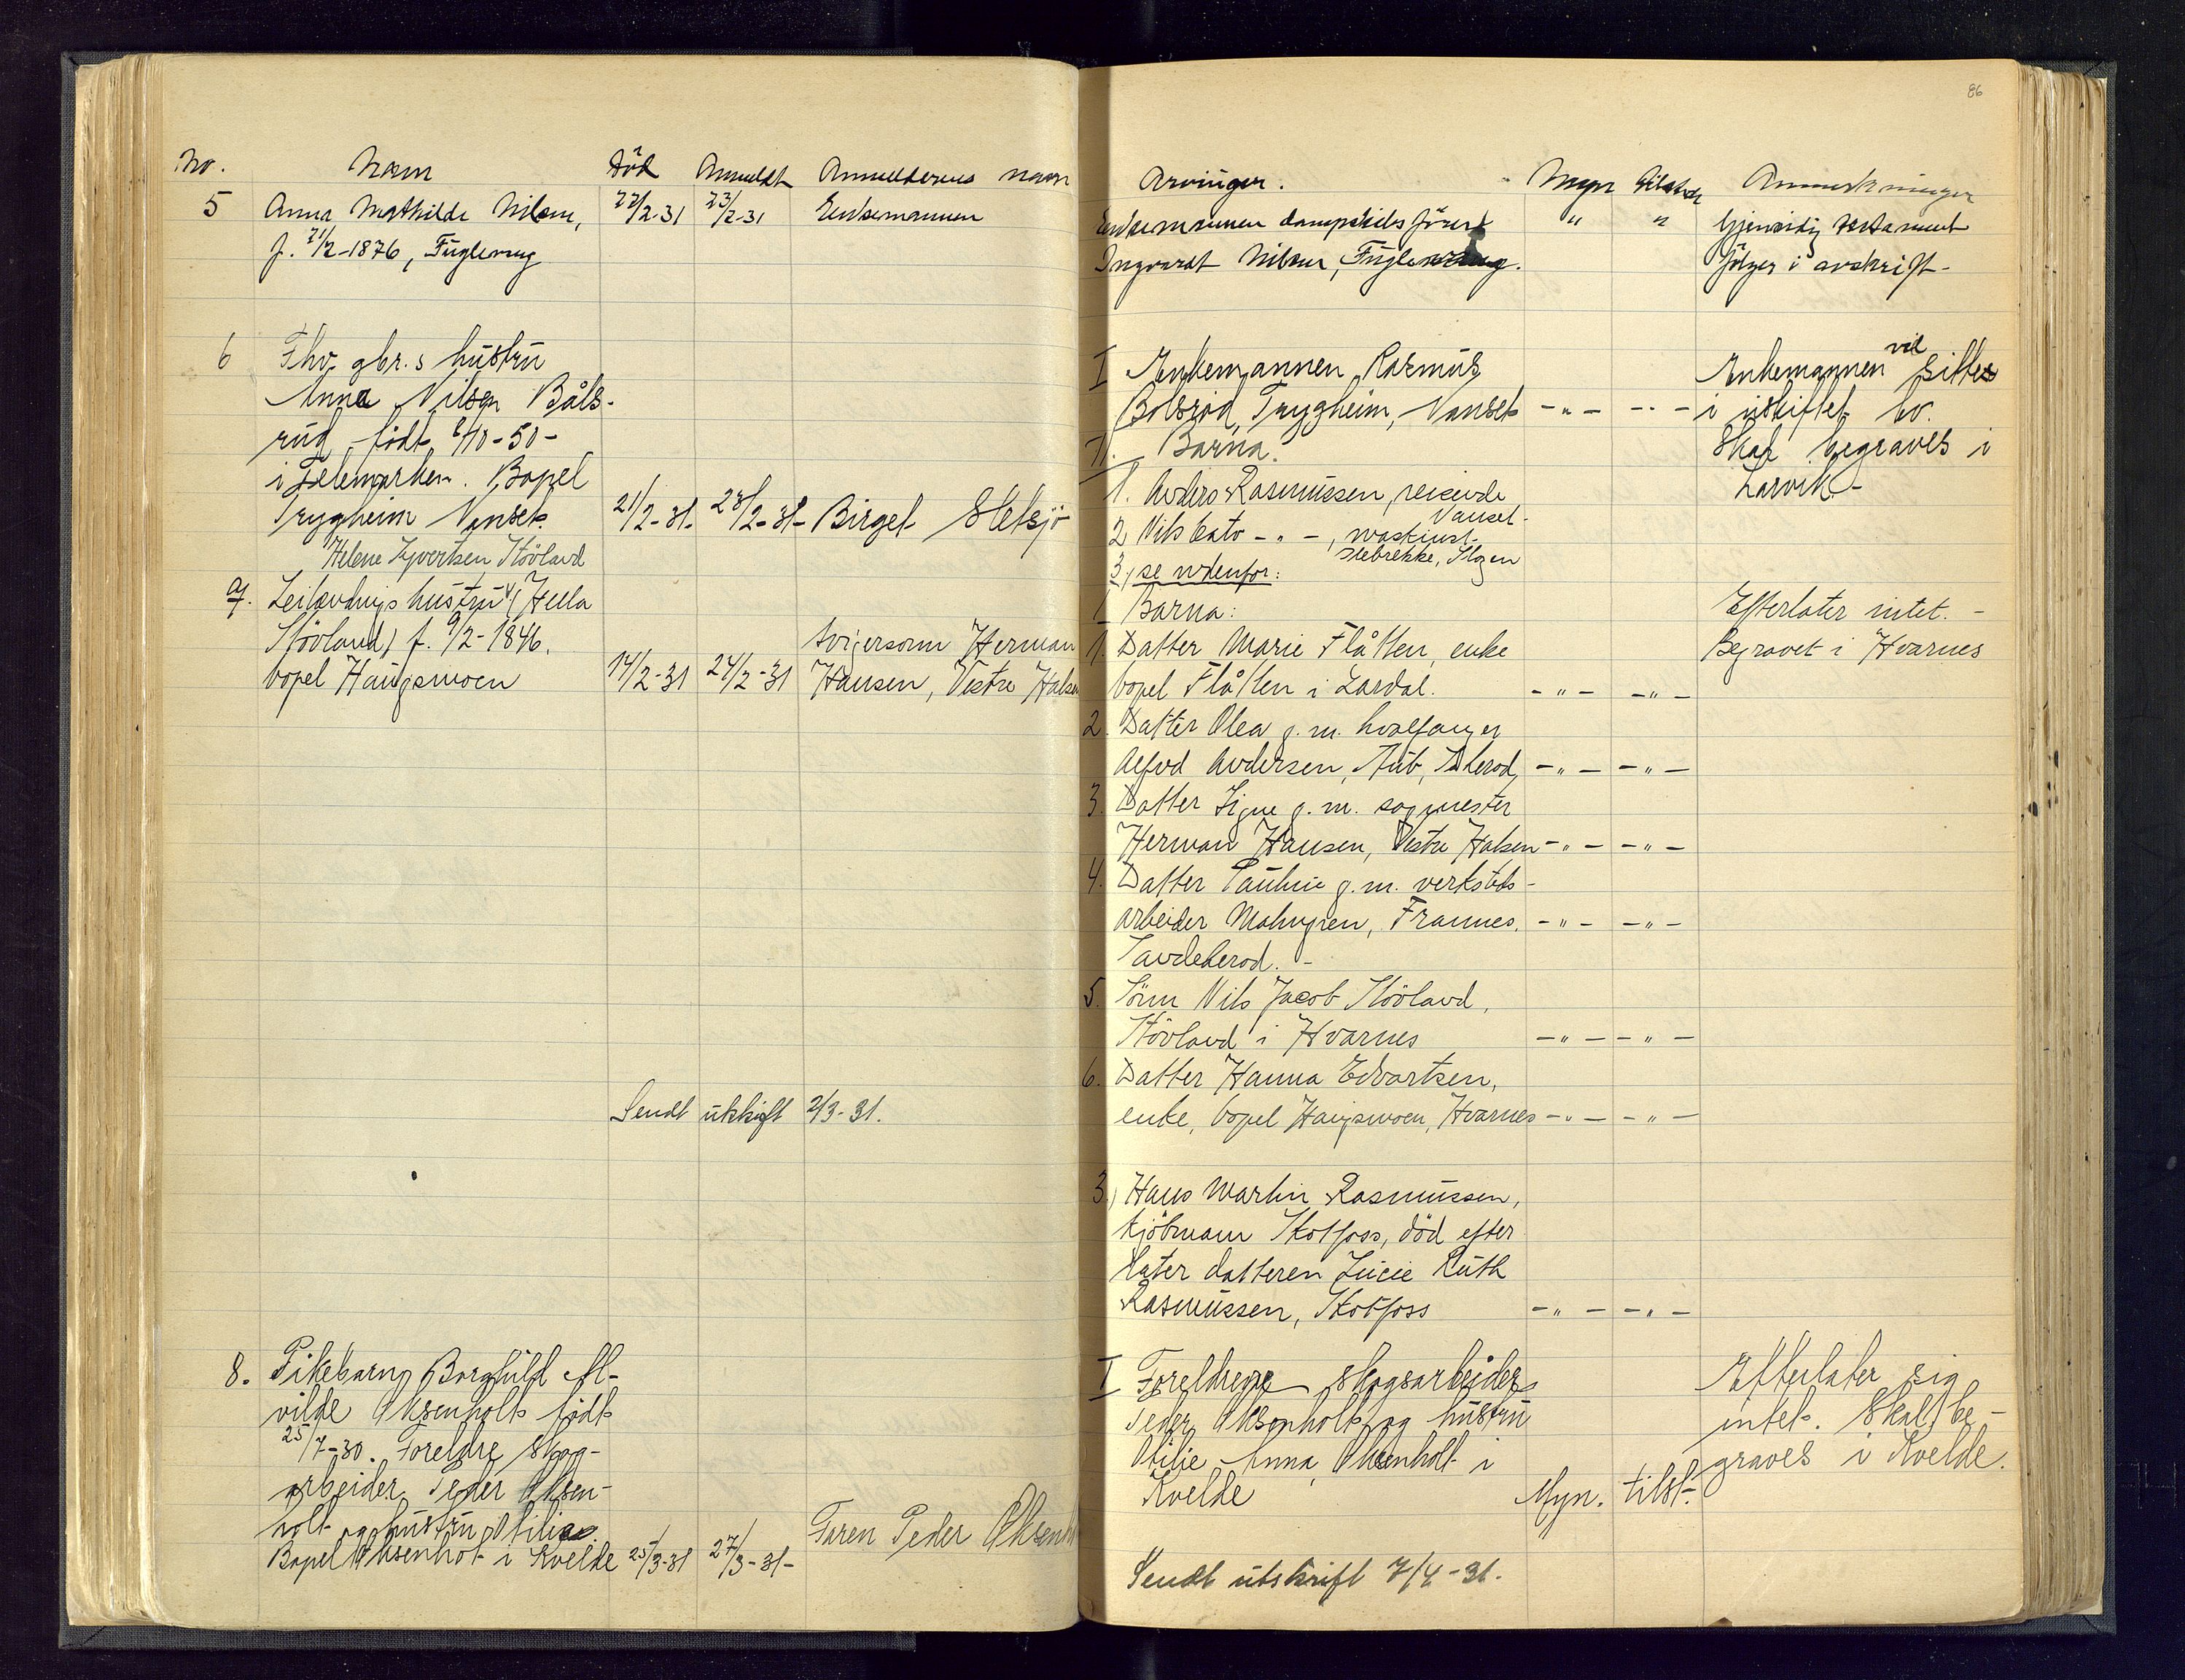 No. Navn Død Anmeldt Anmelderens navn
5 Anna Mathilde Nilsen, 22/2-31 23/2-31 Enkemannen
f. 21/2-1876, Fuglevug
6 Fhv. gbr.s hustru
Anna Nilsen Båls-
rud, født 8/10-50-
i Telemarken. Bopel
Trygheim Nanset. 21/2-31. 28/2-31- Birget Sletsjø
Helene Syvertsen Støvland
7. Leilendings hustru (Hella
Støvland) f. 9/2-1846.
bopel Haugsmoen 14/2-31 24/2-31
Svigersønn Herman
Hansen, Vestre Halsen
Sendt utskrift 2/3-31.
8. Pikebarn Borghild Al-
vilde Oksenholt født
25/7-30. Foreldre Skog-
arbeider Peder Oksen-
holt og hustru Otilie
Bopel Oksenhol- i Kvelde 25/3-31 27/3-31- Faren Peder Oksenh
86
Arvinger. Myn Tilstede Anmerkninger
Enkemannen dampskibsfører " " Gjensidig testament
Ingvarat Nilsen, Fuglevug. følger i avskrift-
I Enkemannen Rasmus Enkemannen vil sitte
Bolsrød, Trygheim, Nanset -"- -"- i uskiftet bo.
II. Barna. Skal begraves i
1. Anders Rasmussen, reisende Larvik.-
Nanset-
2 Nils Cato -"-, maskinst.
Slebrekke, Skogen
3) se nedenfor:
I Barna: Efterlater intet. -
1. Datter Marie Flåtten, enke Begravet i Hvarnes
bopel Flåtten i Lardal. -"- -"-
2. Datter Olea g.m. hvalfanger
Alfred Andersen, Aub, Tjherod, -"- -"-
3. Datter Signe g.m. sagmester
Herman Hansen, Vestre Halsen -"- -"-
4. Datter Pauline g.m. verksteds-
arbeider Malmgren, Framnes, -"- -"-
Sandeherod. -
5. Sønn Nils Jacob Støvland,
Støvland i Hvarnes -"- -"-
6. Datter Hanna Edvartsen,
enke, bopel Haugsmoen, Hvarnes -"- -"-
3.) Hans Martin Rasmussen,
kjøbmann Skotfoss, død efter
later datteren Lucie Ruth
Rasmussen, Skotfoss -"- -"-
I Foreldrene skogsarbeider Efterlater sig
Peder Oksenholt og hustru intet. Skal be-
Otilie Anna Oksenholt i graves i Kvelde.
Kvelde Myn. tilst.
Sendt utskrift 7/4-31.